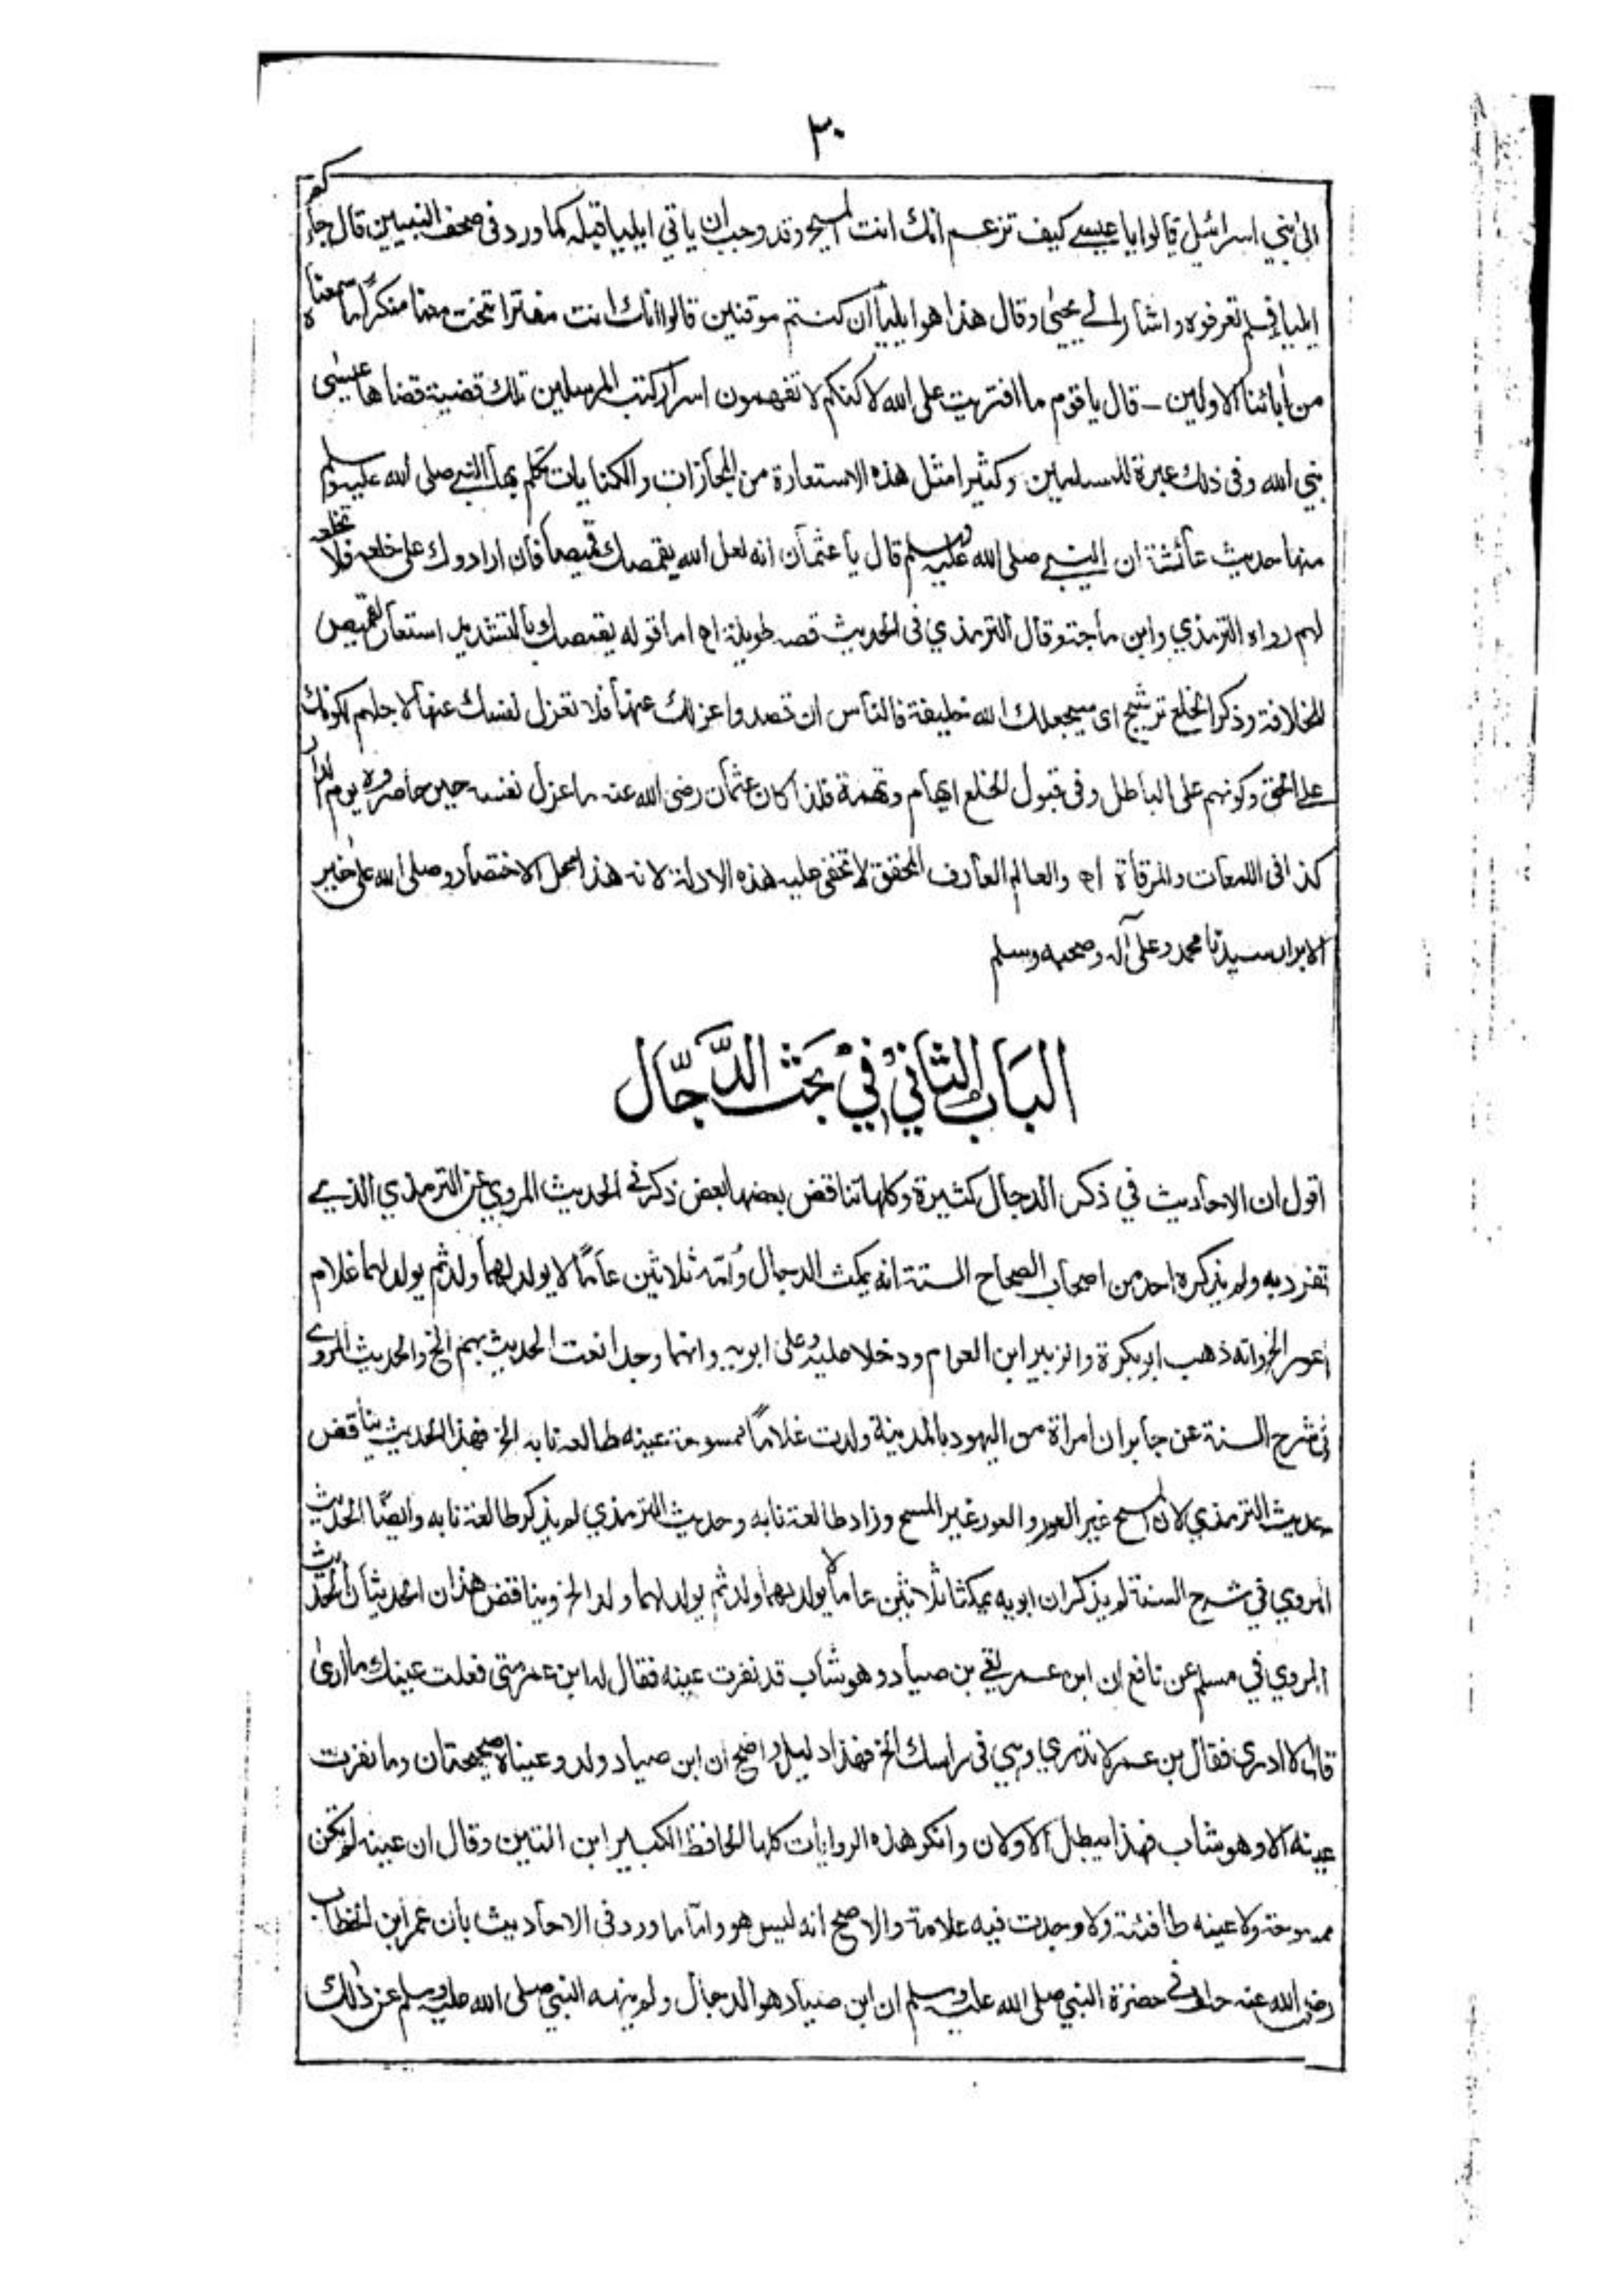 ٣٠
الى بني اسرائيل قالوا يا عيسى كيف تزعم انك انت المسيح وقد وجب ان ياتي ايليا قبله كما ورد فى صحف النبيين قال جاءكم
ايليا فلم تعرفوه واشار الى يحيى وقال هذا هو ايليا ان كنتم موقنين قالوا انك انت مفتر اتنحت معنا منكرًا ما سمعناه
من أبائنا الاولين - قال يا قوم ما افتريت على الله لاكنكم لا تفهمون اسرار كتب المرسلين تلك قضية قضاها عيسى
نبي الله وفى ذلك عبرة للمسلمين وكثيرا مثل هذه الاستعارة من المجازات والكنايات تكلم بها النبي صلى الله عليه وسلم
منها حديث عائشة ان النبي صلى الله عليه وسلم قال يا عثمان انه لعل الله يقمصك قميصا فان ارادوك على خلعه فلا تخلعه
لهم رواه الترمذي وابن ماجة وقال الترمذي فى الحديث قصه طويلة اه اما قوله يقمصك بالتشديد استعار القميص
للخلافة وذكر الخلع ترشيح اى سيجعلك الله خليفة فالناس ان قصدوا عزلك عنها فلا تعزل نفسك عنها لاجلهم لكونك
على الحق وكونهم على الباطل وفى قبول الخلع ايهام وتهمة فلذا كان عثمان رضى الله عنه ما عزل نفسه حين حاصروه يوم الدار
كذا فى اللمعات والمرقاة اه والعالم العارف المحقق لا تخفى عليه هذه الادلة لانه هذا محل الاختصار وصلى الله على خير
الابرار سيدنا محمد وعلى آله وصحبه وسلم
البَابُ الثَّانِيْ فِيْ بَحَثِ الدَّجَّال
اقول ان الاحاديث في ذكر الدجال كثيرة وكلها تناقض بعضها لبعض ذكر فى الحديث المروي عن الترمذي الذي
تفرد به ولم يذكره احد من اصحاب الصحاح الستة انه يمكث الدجال وأمه ثلاثين عامًا لا يولد لهما ولد ثم يولد لهما غلام
اعور الخ وانه ذهب ابو بكرة والزبير ابن العوام ودخلا عليه وعلى ابويه وانهما وجدا نعت الحديث بهم الخ والحديث المروى
فى شرح السنة عن جابر ان امراة من اليهود بالمدينة ولدت غلامًا ممسوحة عينه طالعه نابه الخ فهذا الحديث يناقض
حديث الترمذي لان المسح غير العور والعور غير المسح وزاد طالعة نابه وحديث الترمذي لم يذكر طالعة نابه وايضًا الحديث
المروي في شرح السنة لم يذكر ان ابويه يمكثا ثلاثين عاما لا يولد لهما ولد ثم يولد لهما ولد الخ ويناقض هذان الحديثان الحديث
المروي في مسلم عن نافع ان ابن عمر لقي بن صياد وهو شاب قد نفرت عينه فقال له ابن عمر متى فعلت عينك ما ارى
قال لا ادرى فقال بن عمر لا تدري وهي فى راسك الخ فهذا دليل واضح ان ابن صياد ولد وعيناه صحيحتان وما نفرت
عينه الا وهو شاب فهذا يبطل الاولان وانكر هذه الروايات كلها الحافظ الكبير ابن التين وقال ان عينه لم تكن
ممسوحة ولا عينه طافئة ولا وجدت فيه علامة والاصح انه ليس هو واما ما ورد فى الاحاديث بان عمر ابن الخطاب
رضى الله عنه حلف فى حضرة النبي صلى الله عليه وسلم ان ابن صياد هو الدجال ولم ينهه النبي صلى الله عليه وسلم عن ذلك